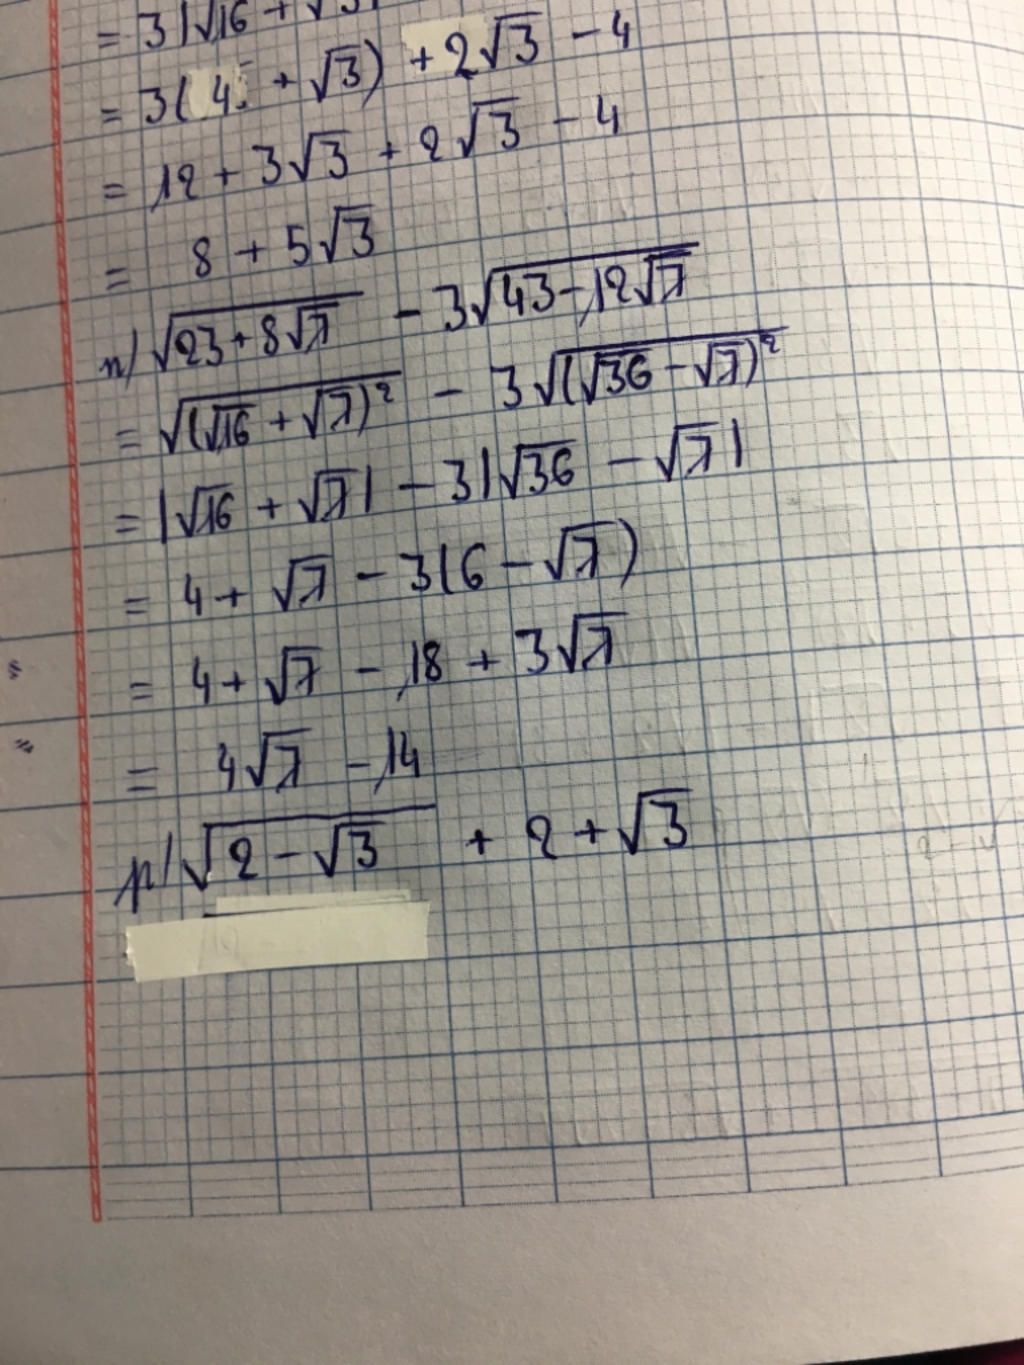 = 3|√16 + √3
= 3(4 + √3) + 2√3 - 4
= 12 + 3√3 + 2√3 - 4
= 8 + 5√3
n/ √(23+8√7) - 3√(43-12√7)
= √((√16 + √7)²) - 3√((√36 - √7)²)
= |√16 + √7| - 3|√36 - √7|
= 4 + √7 - 3(6 - √7)
= 4 + √7 - 18 + 3√7
= 4√7 - 14
p/ √(2 - √3) + 2 + √3